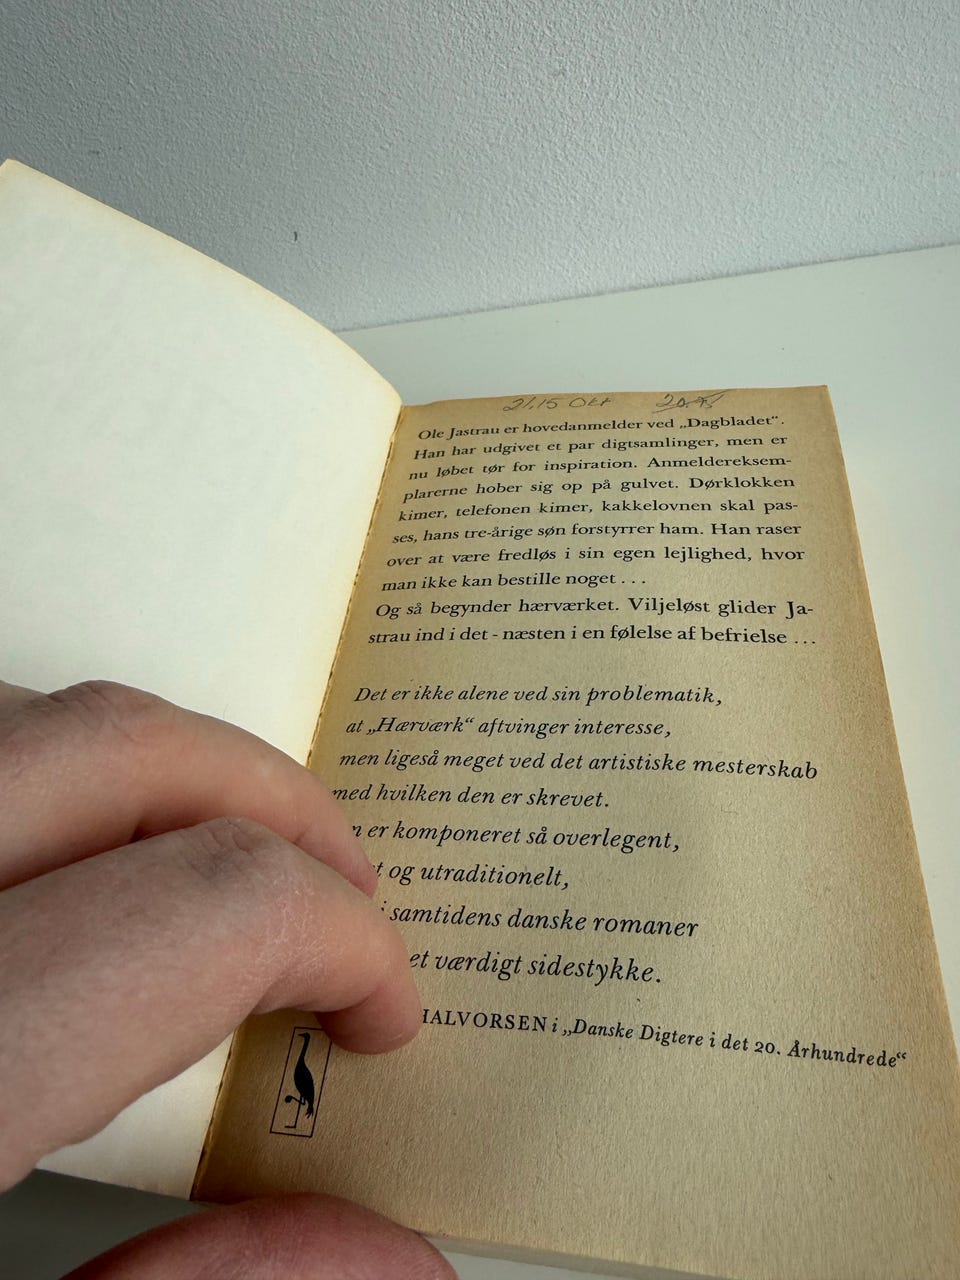 21.15 Okt
Ole Jastrau er hovedanmelder ved „Dagbladet“.
Han har udgivet et par digtsamlinger, men er
nu løbet tør for inspiration. Anmeldereksem-
plarerne hober sig op på gulvet. Dørklokken
kimer, telefonen kimer, kakkelovnen skal pas-
ses, hans tre-årige søn forstyrrer ham. Han raser
over at være fredløs i sin egen lejlighed, hvor
man ikke kan bestille noget . . .
Og så begynder hærværket. Viljeløst glider Ja-
strau ind i det - næsten i en følelse af befrielse . . .
Det er ikke alene ved sin problematik,
at „Hærværk“ aftvinger interesse,
men ligeså meget ved det artistiske mesterskab
med hvilken den er skrevet.
er komponeret så overlegent,
og utraditionelt,
i samtidens danske romaner
et værdigt sidestykke.
HALVORSEN i „Danske Digtere i det 20. Århundrede“